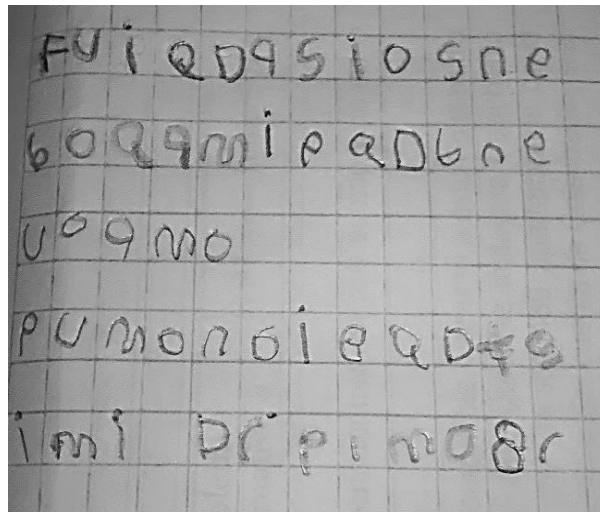 FUiQDqSioSne
boQqmipaDbne
uoqmo
pumonoieaDts
imi Dr pimo8r